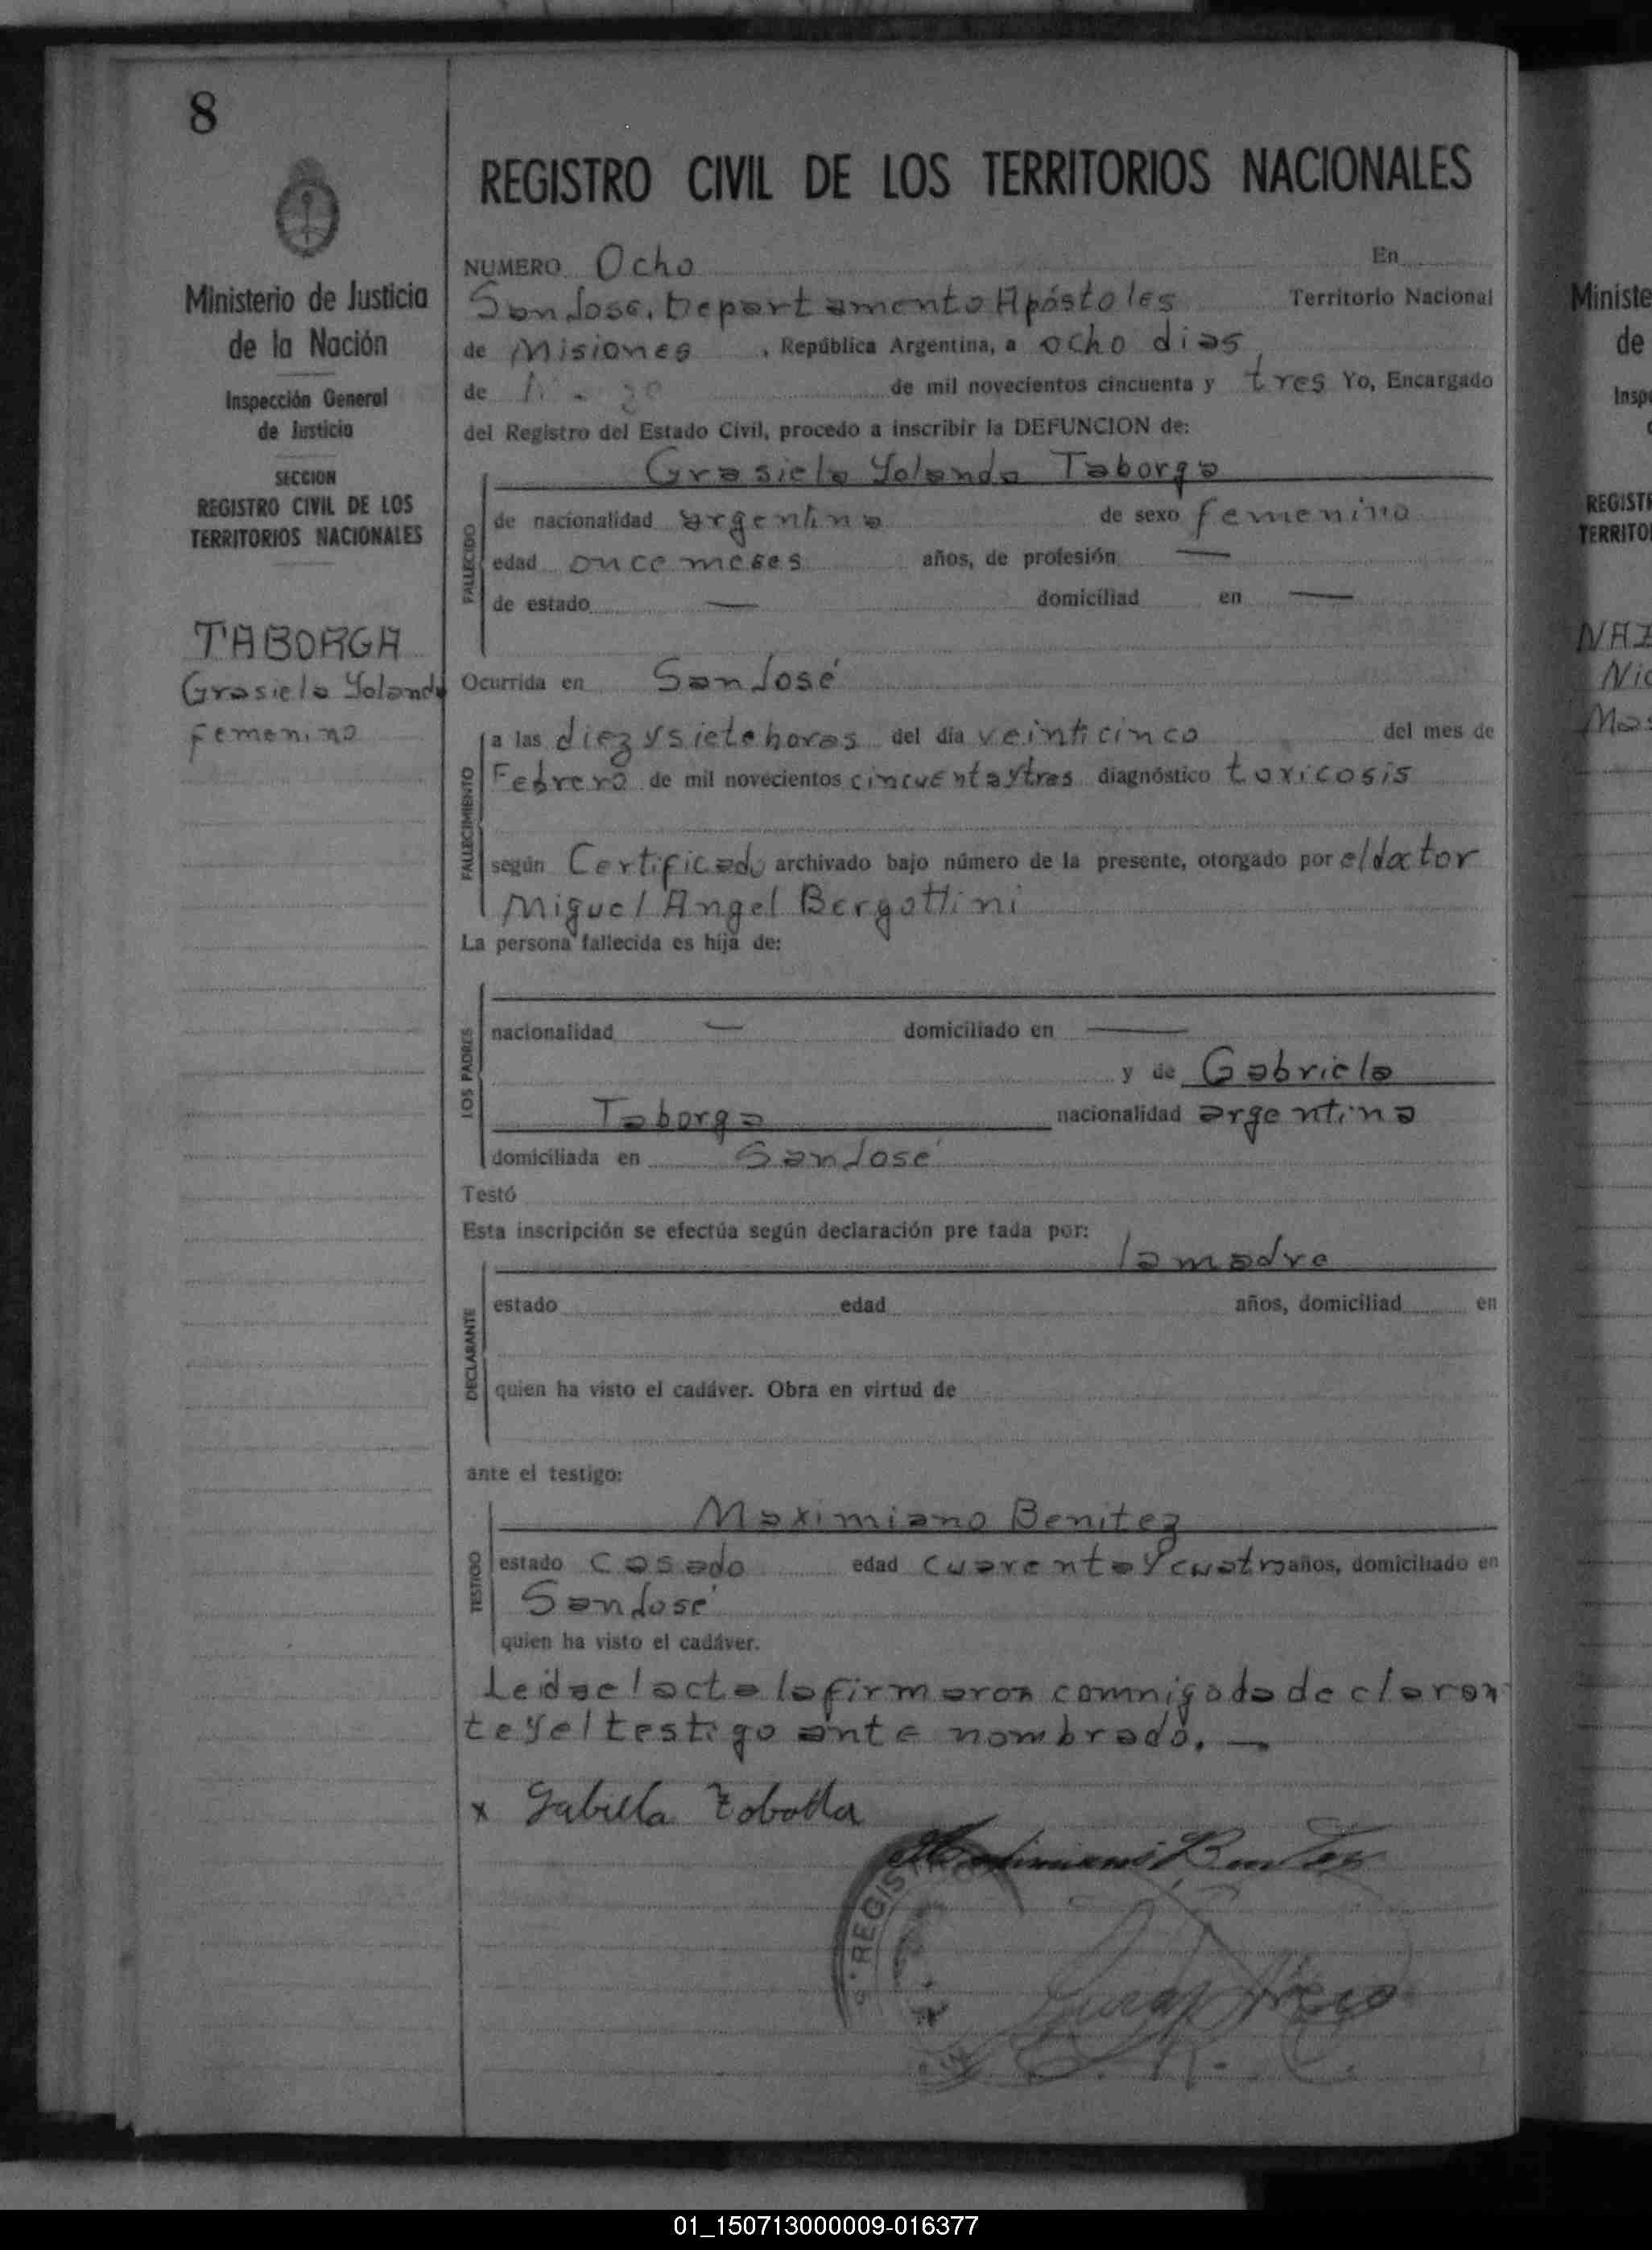 8
REGISTRO CIVIL DE LOS TERRITORIOS NACIONALES
Ministerio de Justicia
de la Nación
Inspección General
de Justicia
SECCION
REGISTRO CIVIL DE LOS
TERRITORIOS NACIONALES
TABORGA
Grasiela Yolanda
femenino
NUMERO Ocho En
San José, Departamento Apóstoles Territorio Nacional
de Misiones , República Argentina, a ocho dias
de de mil novecientos cincuenta y tres Yo, Encargado
del Registro del Estado Civil, procedo a inscribir la DEFUNCION de:
Grasiela Yolanda Taborga
FALLECIDO
de nacionalidad argentina de sexo femenino
edad once meses años, de profesión —
de estado — domiciliad en —
Ocurrida en San José
FALLECIMIENTO
a las diez y siete horas del día veinticinco del mes de
Febrero de mil novecientos cincuenta y tres diagnóstico toxicosis
según Certificado archivado bajo número de la presente, otorgado por el doctor
Miguel Angel Bergottini
La persona fallecida es hija de:
LOS PADRES
nacionalidad — domiciliado en —
y de Gabriela
Taborga nacionalidad argentina
domiciliada en San José
Testó
Esta inscripción se efectúa según declaración pre tada por:
la madre
DECLARANTE
estado edad años, domiciliad en
quien ha visto el cadáver. Obra en virtud de
ante el testigo:
Maximiano Benitez
TESTIGO
estado Casado edad cuarenta y cuatro años, domiciliado en
San José
quien ha visto el cadáver.
Leida el acta la firmaron comnigo la declaran
te y el testigo ante nombrado. —
x
REGIS
Ministe
de
Insp
REGISTR
TERRITO
NAZ
Nic
Mas
01_150713000009-016377